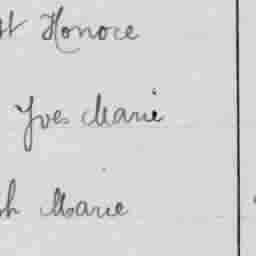 st Honore
Yves Marie
ph Marie